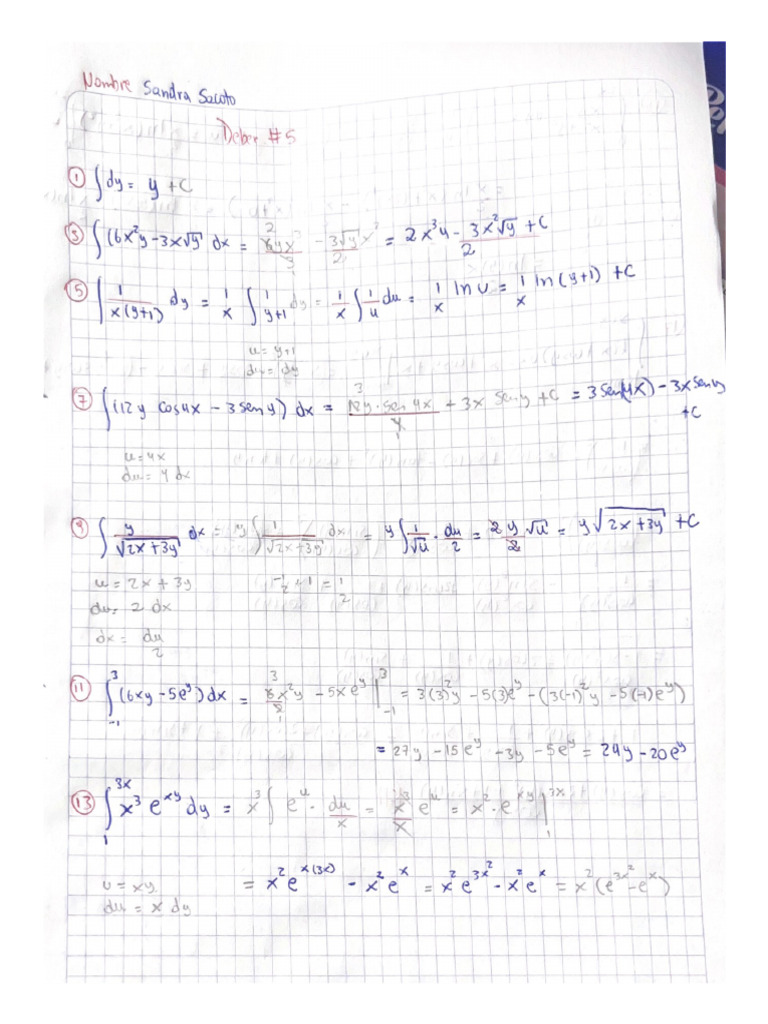 Nombre Sandra Sacoto
Deber #5
① ∫dy = y + C
③ ∫(6x²y - 3x√y dx = 6yx³/3 - 3√y x²/2 = 2x³y - 3x²√y/2 + C
⑤ ∫ 1/x(y+1) dy = 1/x ∫ 1/y+1 dy = 1/x ∫ 1/u du = 1/x ln u = 1/x ln(y+1) + C
u = y+1
du = dy
⑦ ∫(12y cos4x - 3seny) dx = 12y·sen4x/4 + 3x sen y + C = 3sen(4x) - 3x sen y
+C
u = 4x
du = 4 dx
⑨ ∫ y/√2x+3y dx = y∫ 1/√2x+3y dx = y∫ 1/√u · du/2 = 2y/2 √u = y√2x+3y + C
u = 2x + 3y
-1/2 + 1 = 1/2
du = 2 dx
dx = du/2
⑪ ∫₋₁³ (6xy - 5eʸ) dx = 6x²y/2 - 5xeʸ |₋₁³ = 3(3)²y - 5(3)eʸ - (3(-1)²y - 5(-1)eʸ)
= 27y - 15eʸ - 3y - 5eʸ = 24y - 20eʸ
⑬ ∫₁³ˣ x³ e^xy dy = x³ ∫ e^u · du/x = x³/x e^u = x² · e^xy |₁³ˣ
= x² e^x(3x) - x² e^x = x² e^3x² - x² e^x = x²(e^3x² - e^x)
u = xy
du = x dy